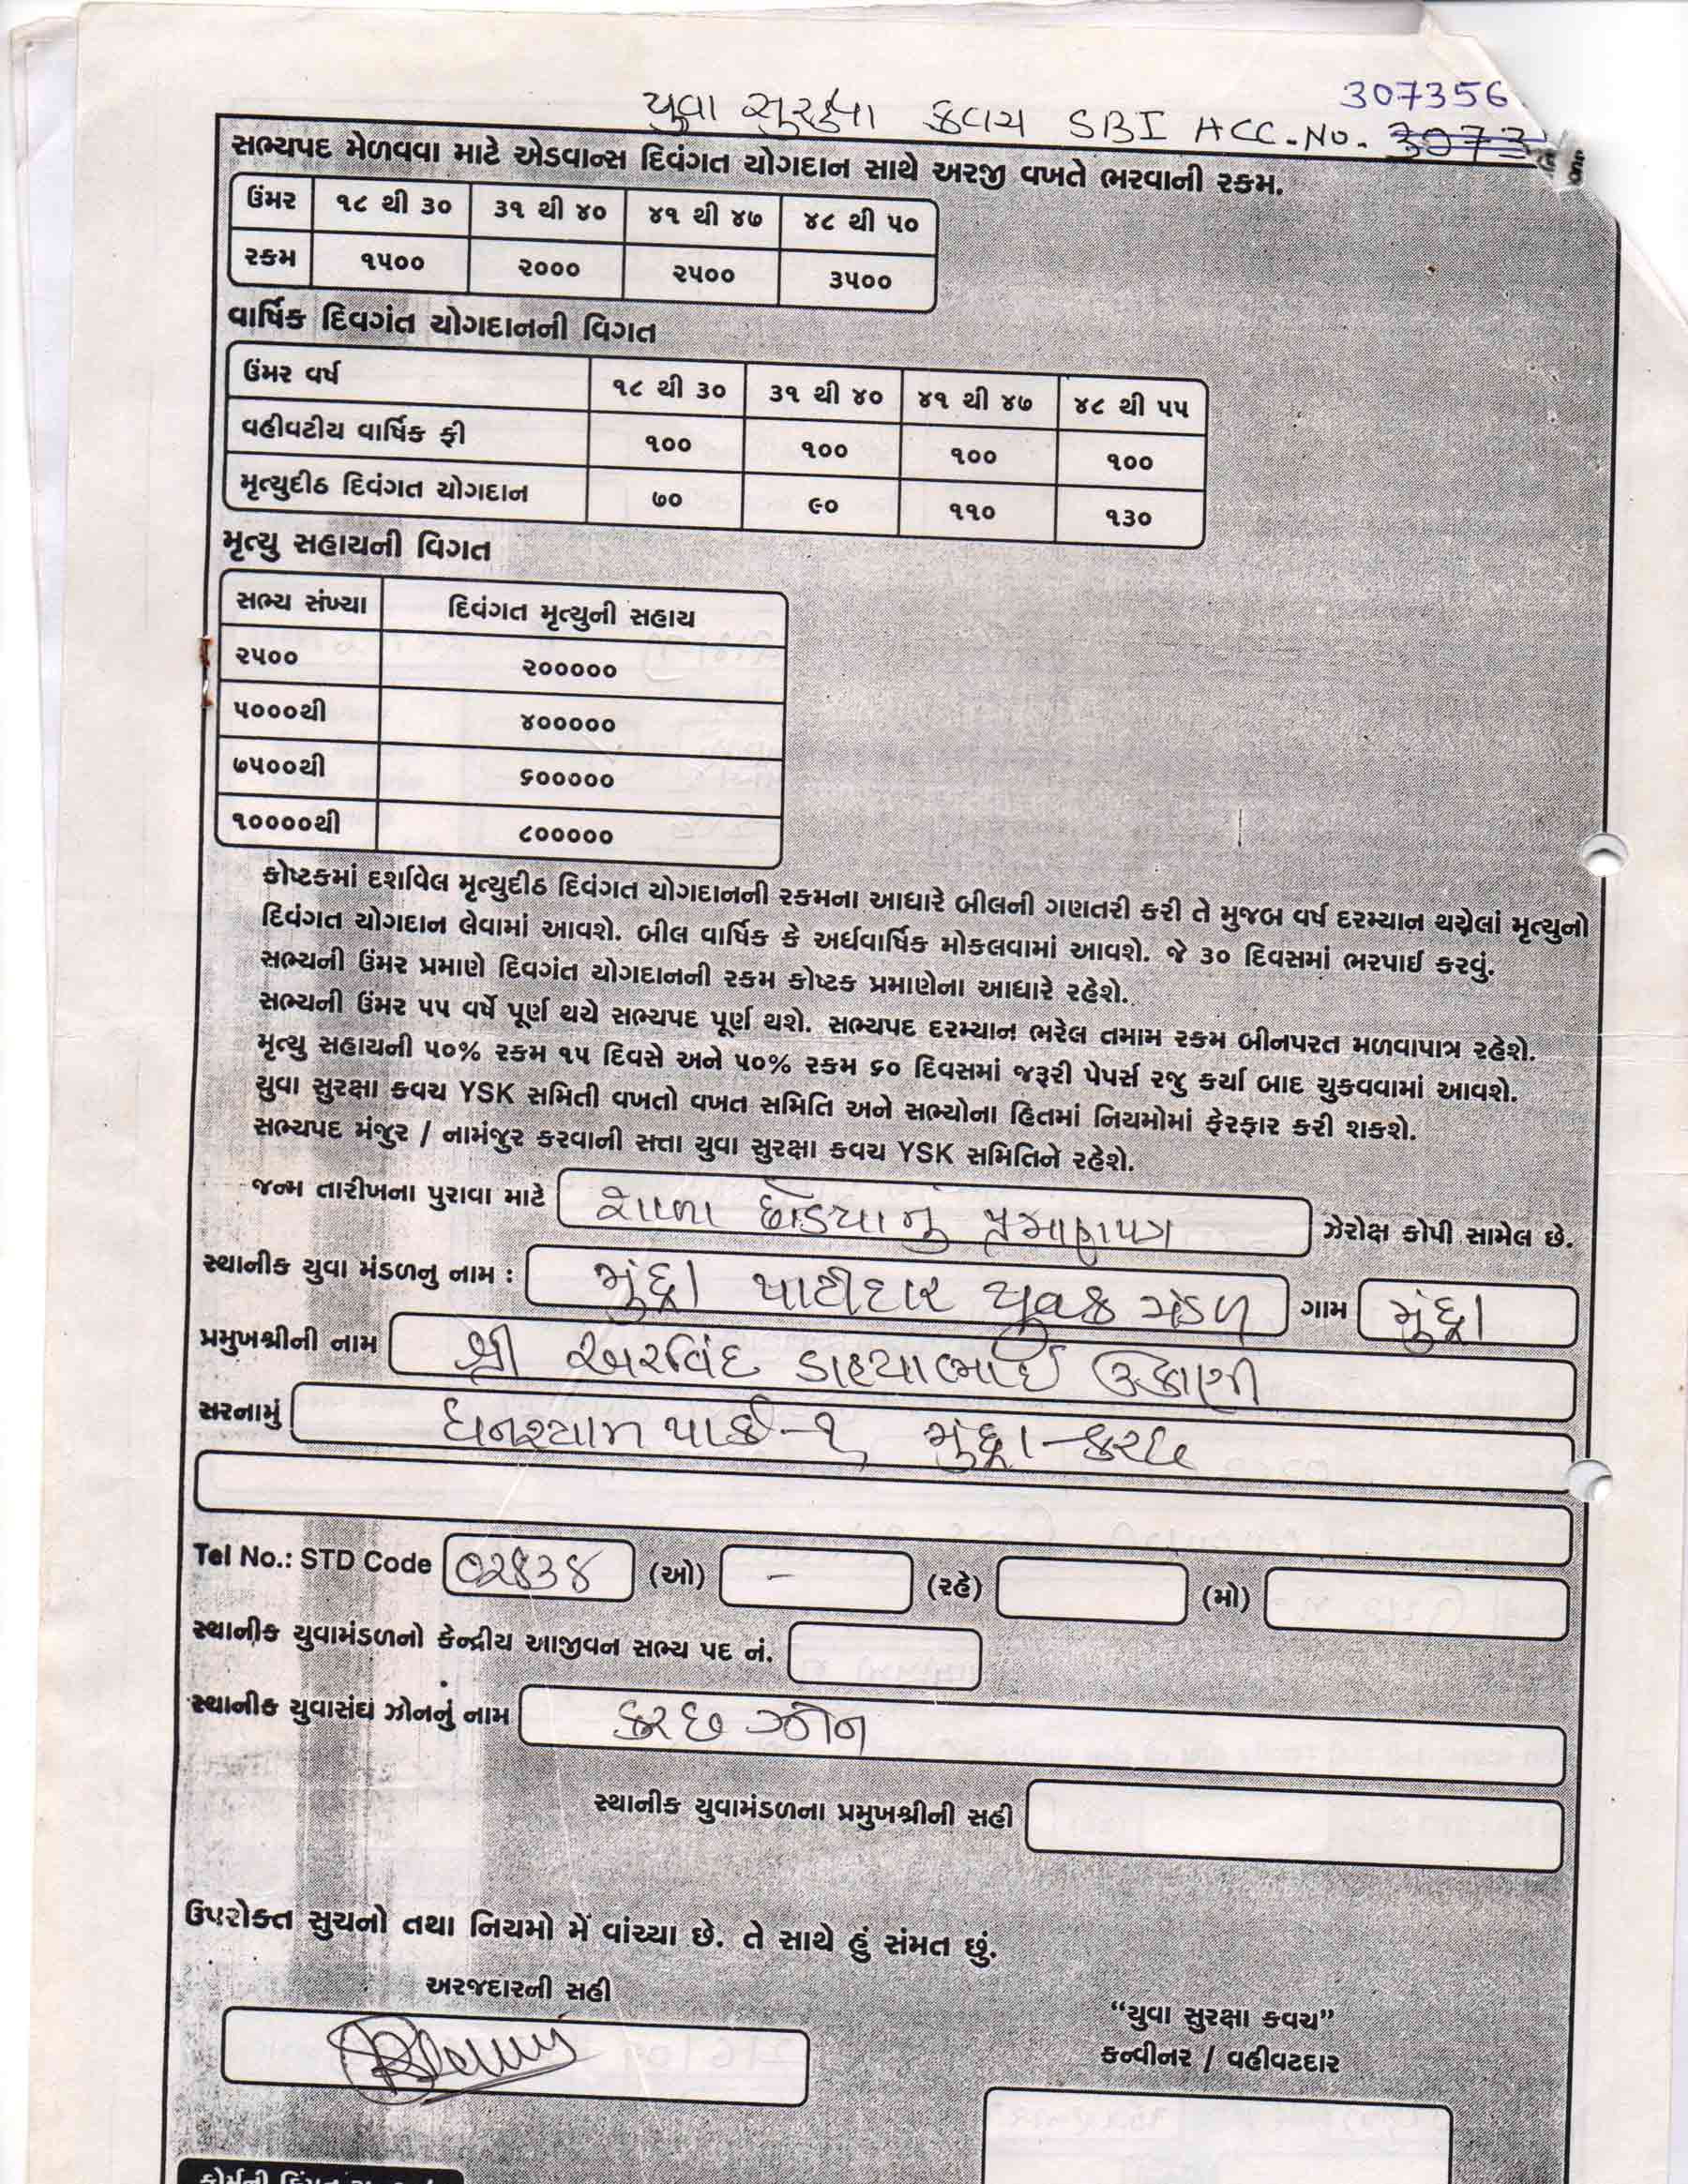 307356
યુવા સુરક્ષા કવચ SBI ACC.No. 3073
સભ્યપદ મેળવવા માટે એડવાન્સ દિવંગત યોગદાન સાથે અરજી વખતે ભરવાની રકમ.
ઉંમર ૧૮ થી ૩૦ ૩૧ થી ૪૦ ૪૧ થી ૪૭ ૪૮ થી ૫૦
રકમ ૧૫૦૦ ૨૦૦૦ ૨૫૦૦ ૩૫૦૦
વાર્ષિક દિવગંત યોગદાનની વિગત
ઉંમર વર્ષ ૧૮ થી ૩૦ ૩૧ થી ૪૦ ૪૧ થી ૪૭ ૪૮ થી ૫૫
વહીવટીય વાર્ષિક ફી ૧૦૦ ૧૦૦ ૧૦૦ ૧૦૦
મૃત્યુદીઠ દિવંગત યોગદાન ૭૦ ૯૦ ૧૧૦ ૧૩૦
મૃત્યુ સહાયની વિગત
સભ્ય સંખ્યા દિવંગત મૃત્યુની સહાય
૨૫૦૦ ૨૦૦૦૦૦
૫૦૦૦થી ૪૦૦૦૦૦
૭૫૦૦થી ૬૦૦૦૦૦
૧૦૦૦૦થી ૮૦૦૦૦૦
કોષ્ટકમાં દર્શાવેલ મૃત્યુદીઠ દિવંગત યોગદાનની રકમના આધારે બીલની ગણતરી કરી તે મુજબ વર્ષ દરમ્યાન થયેલાં મૃત્યુનો
દિવંગત યોગદાન લેવામાં આવશે. બીલ વાર્ષિક કે અર્ધવાર્ષિક મોકલવામાં આવશે. જે ૩૦ દિવસમાં ભરપાઈ કરવું.
સભ્યની ઉંમર પ્રમાણે દિવગંત યોગદાનની રકમ કોષ્ટક પ્રમાણેના આધારે રહેશે.
સભ્યની ઉંમર ૫૫ વર્ષે પૂર્ણ થયે સભ્યપદ પૂર્ણ થશે. સભ્યપદ દરમ્યાન ભરેલ તમામ રકમ બીનપરત મળવાપાત્ર રહેશે.
મૃત્યુ સહાયની ૫૦% રકમ ૧૫ દિવસે અને ૫૦% રકમ ૬૦ દિવસમાં જરૂરી પેપર્સ રજુ કર્યા બાદ ચુકવવામાં આવશે.
યુવા સુરક્ષા કવચ YSK સમિતી વખતો વખત સમિતિ અને સભ્યોના હિતમાં નિયમોમાં ફેરફાર કરી શકશે.
સભ્યપદ મંજુર / નામંજુર કરવાની સત્તા યુવા સુરક્ષા કવચ YSK સમિતિને રહેશે.
જન્મ તારીખના પુરાવા માટે શાળા છોડયાનું પ્રમાણપત્ર ઝેરોક્ષ કોપી સામેલ છે.
સ્થાનીક યુવા મંડળનુ નામ : મુંદ્રા પાટીદાર યુવક મંડળ ગામ મુંદ્રા
પ્રમુખશ્રીની નામ શ્રી અરવિંદ ડાહયાભાઈ ઉકાણી
સરનામું ઘનશ્યામ પાર્ક-૧, મુંદ્રા-કચ્છ
Tel No.: STD Code 02838 (ઓ) - (રહે) (મો)
સ્થાનીક યુવામંડળનો કેન્દ્રીય આજીવન સભ્ય પદ નં.
સ્થાનીક યુવાસંઘ ઝોનનું નામ કચ્છ ઝોન
સ્થાનીક યુવામંડળના પ્રમુખશ્રીની સહી
ઉપરોક્ત સુચનો તથા નિયમો મેં વાંચ્યા છે. તે સાથે હું સંમત છું.
અરજદારની સહી
“યુવા સુરક્ષા કવચ”
કન્વીનર / વહીવટદાર